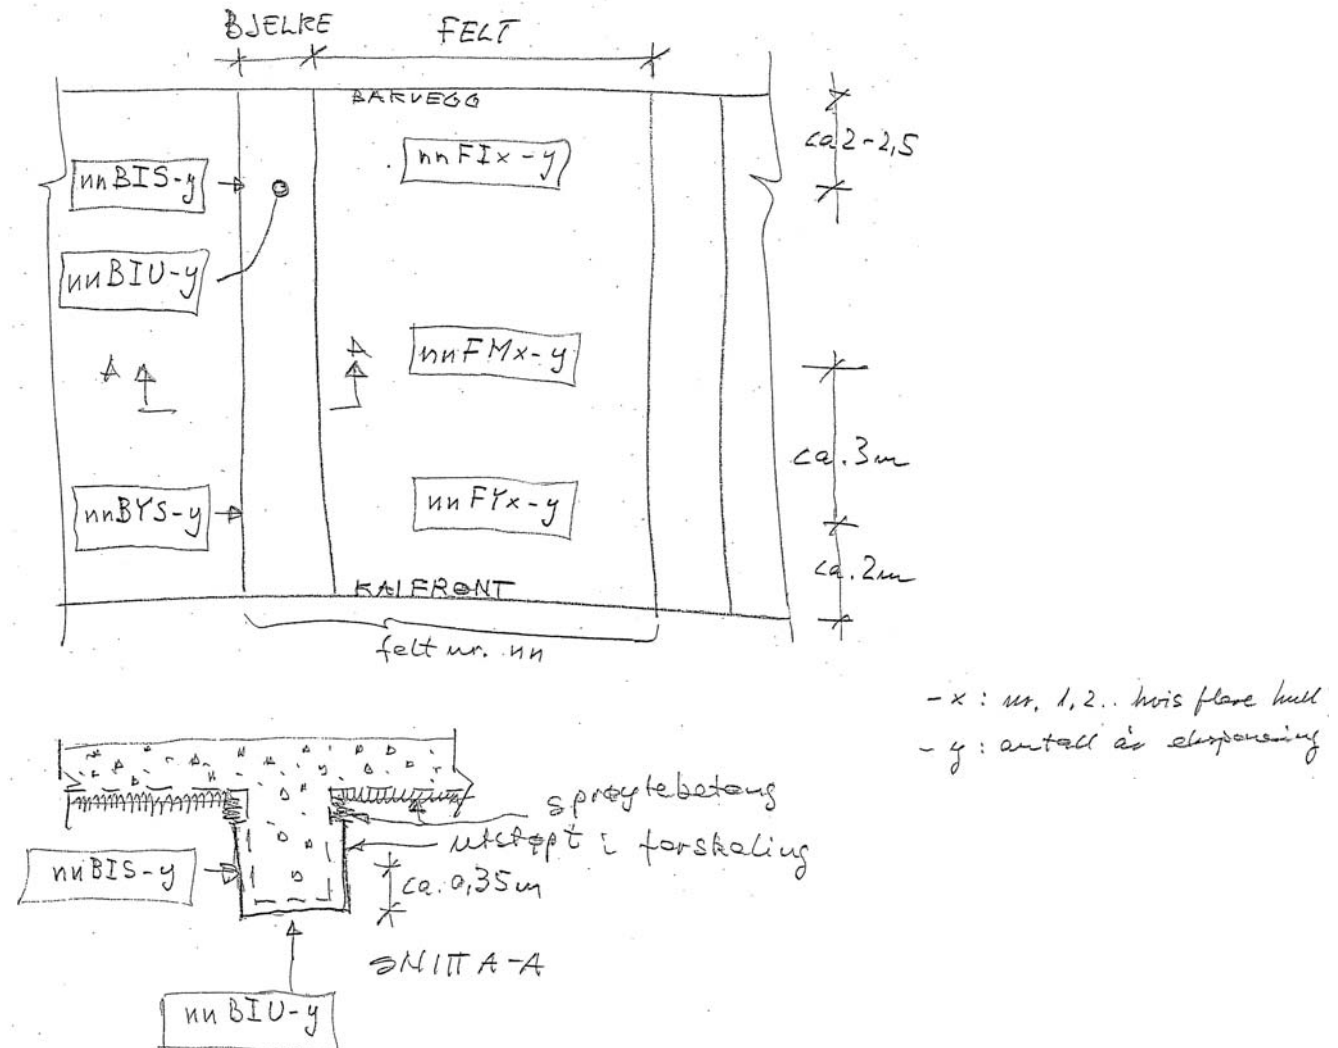 BJELKE FELT
BAKVEGG
ca 2-2,5
nnBIS-y
nnFIx-y
nnBIU-y
A A
nnFMx-y
ca. 3m
nnBYS-y
nnFYx-y
ca. 2m
KAIFRONT
felt nr. nn
- x : nr. 1,2.. hvis flere hull
- y : antall år eksponering
sprøytebetong
utstøpt i forskaling
nnBIS-y
ca. 0,35m
SNITT A-A
nnBIU-y